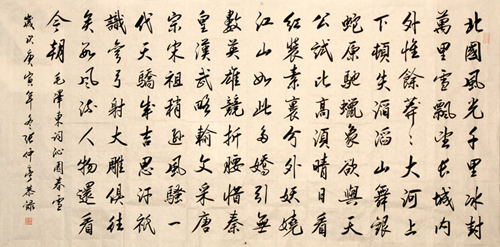 北國風光千里冰封
萬里雪飄望長城內
外惟餘莽〻大河上
下頓失滔滔山舞銀
蛇原馳蠟象欲與天
公試比高須晴日看
紅裝素裹分外妖嬈
江山如此多嬌引無
數英雄競折腰惜秦
皇漢武略輸文采唐
宗宋祖稍遜風騷一
代天驕成吉思汗祇
識彎弓射大雕俱往
矣數風流人物還看
今朝 毛澤東詞沁園春雪
歲次庚寅年冬張仲亭恭錄